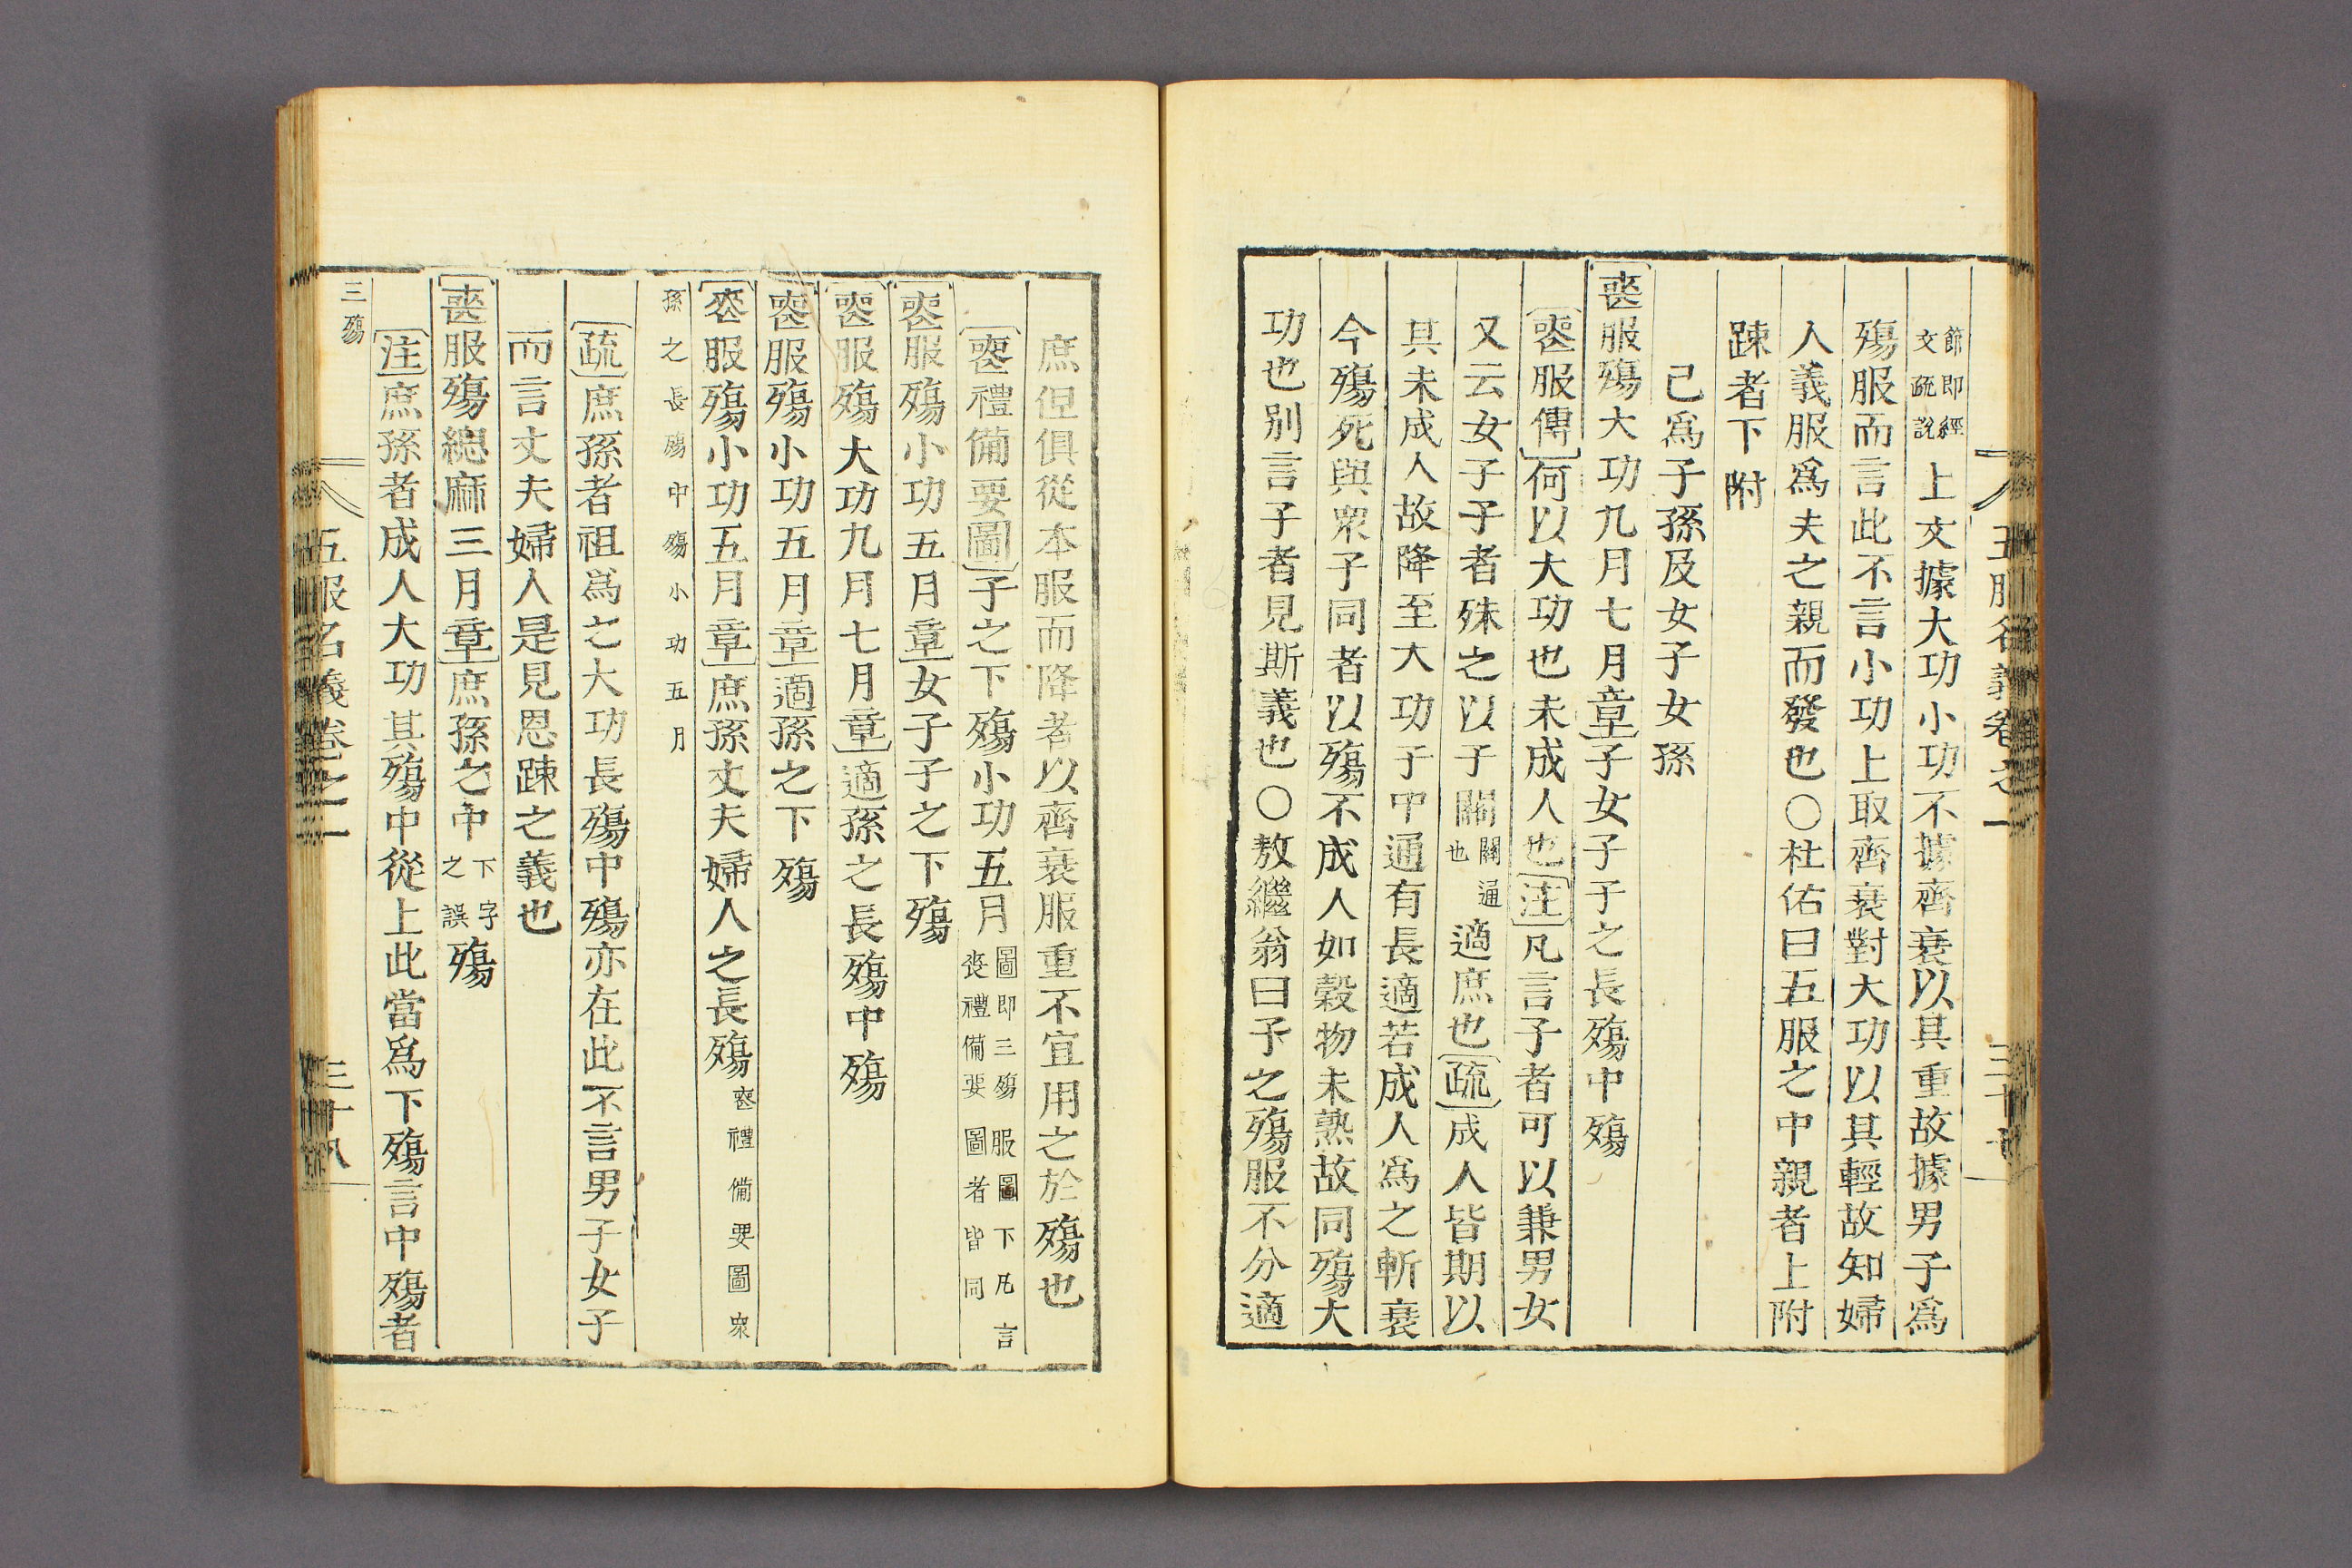 五服名義卷之一
節即經文疏說上文據大功小功不據齊衰以其重故據男子爲
殤服而言此不言小功上取齊衰對大功以其輕故知婦
人義服爲夫之親而發也○杜佑曰五服之中親者上附
踈者下附
己爲子孫及女子女孫
喪服殤大功九月七月章子女子子之長殤中殤
喪服傳何以大功也未成人也注凡言子者可以兼男女
又云女子子者殊之以子關關通也適庶也疏成人皆期以
其未成人故降至大功于中通有長適若成人爲之斬衰
今殤死與衆子同者以殤不成人如穀物未熟故同殤大
功也別言子者見斯義也○敖繼翁曰予之殤服不分適
庶但俱從本服而降者以齊衰服重不宜用之於殤也
喪禮備要圖子之下殤小功五月圖即三殤服圖下凡言喪禮備要圖者皆同
喪服殤小功五月章女子子之下殤
喪服殤大功九月七月章適孫之長殤中殤
喪服殤小功五月章適孫之下殤
喪服殤小功五月章庶孫丈夫婦人之長殤喪禮備要圖衆
孫之長殤中殤小功五月
疏庶孫者祖爲之大功長殤中殤亦在此不言男子女子
而言丈夫婦人是見恩踈之義也
喪服殤緦麻三月章庶孫之中下字之誤殤
注庶孫者成人大功其殤中從上此當爲下殤言中殤者
三殤
五服名義卷之一
三十八